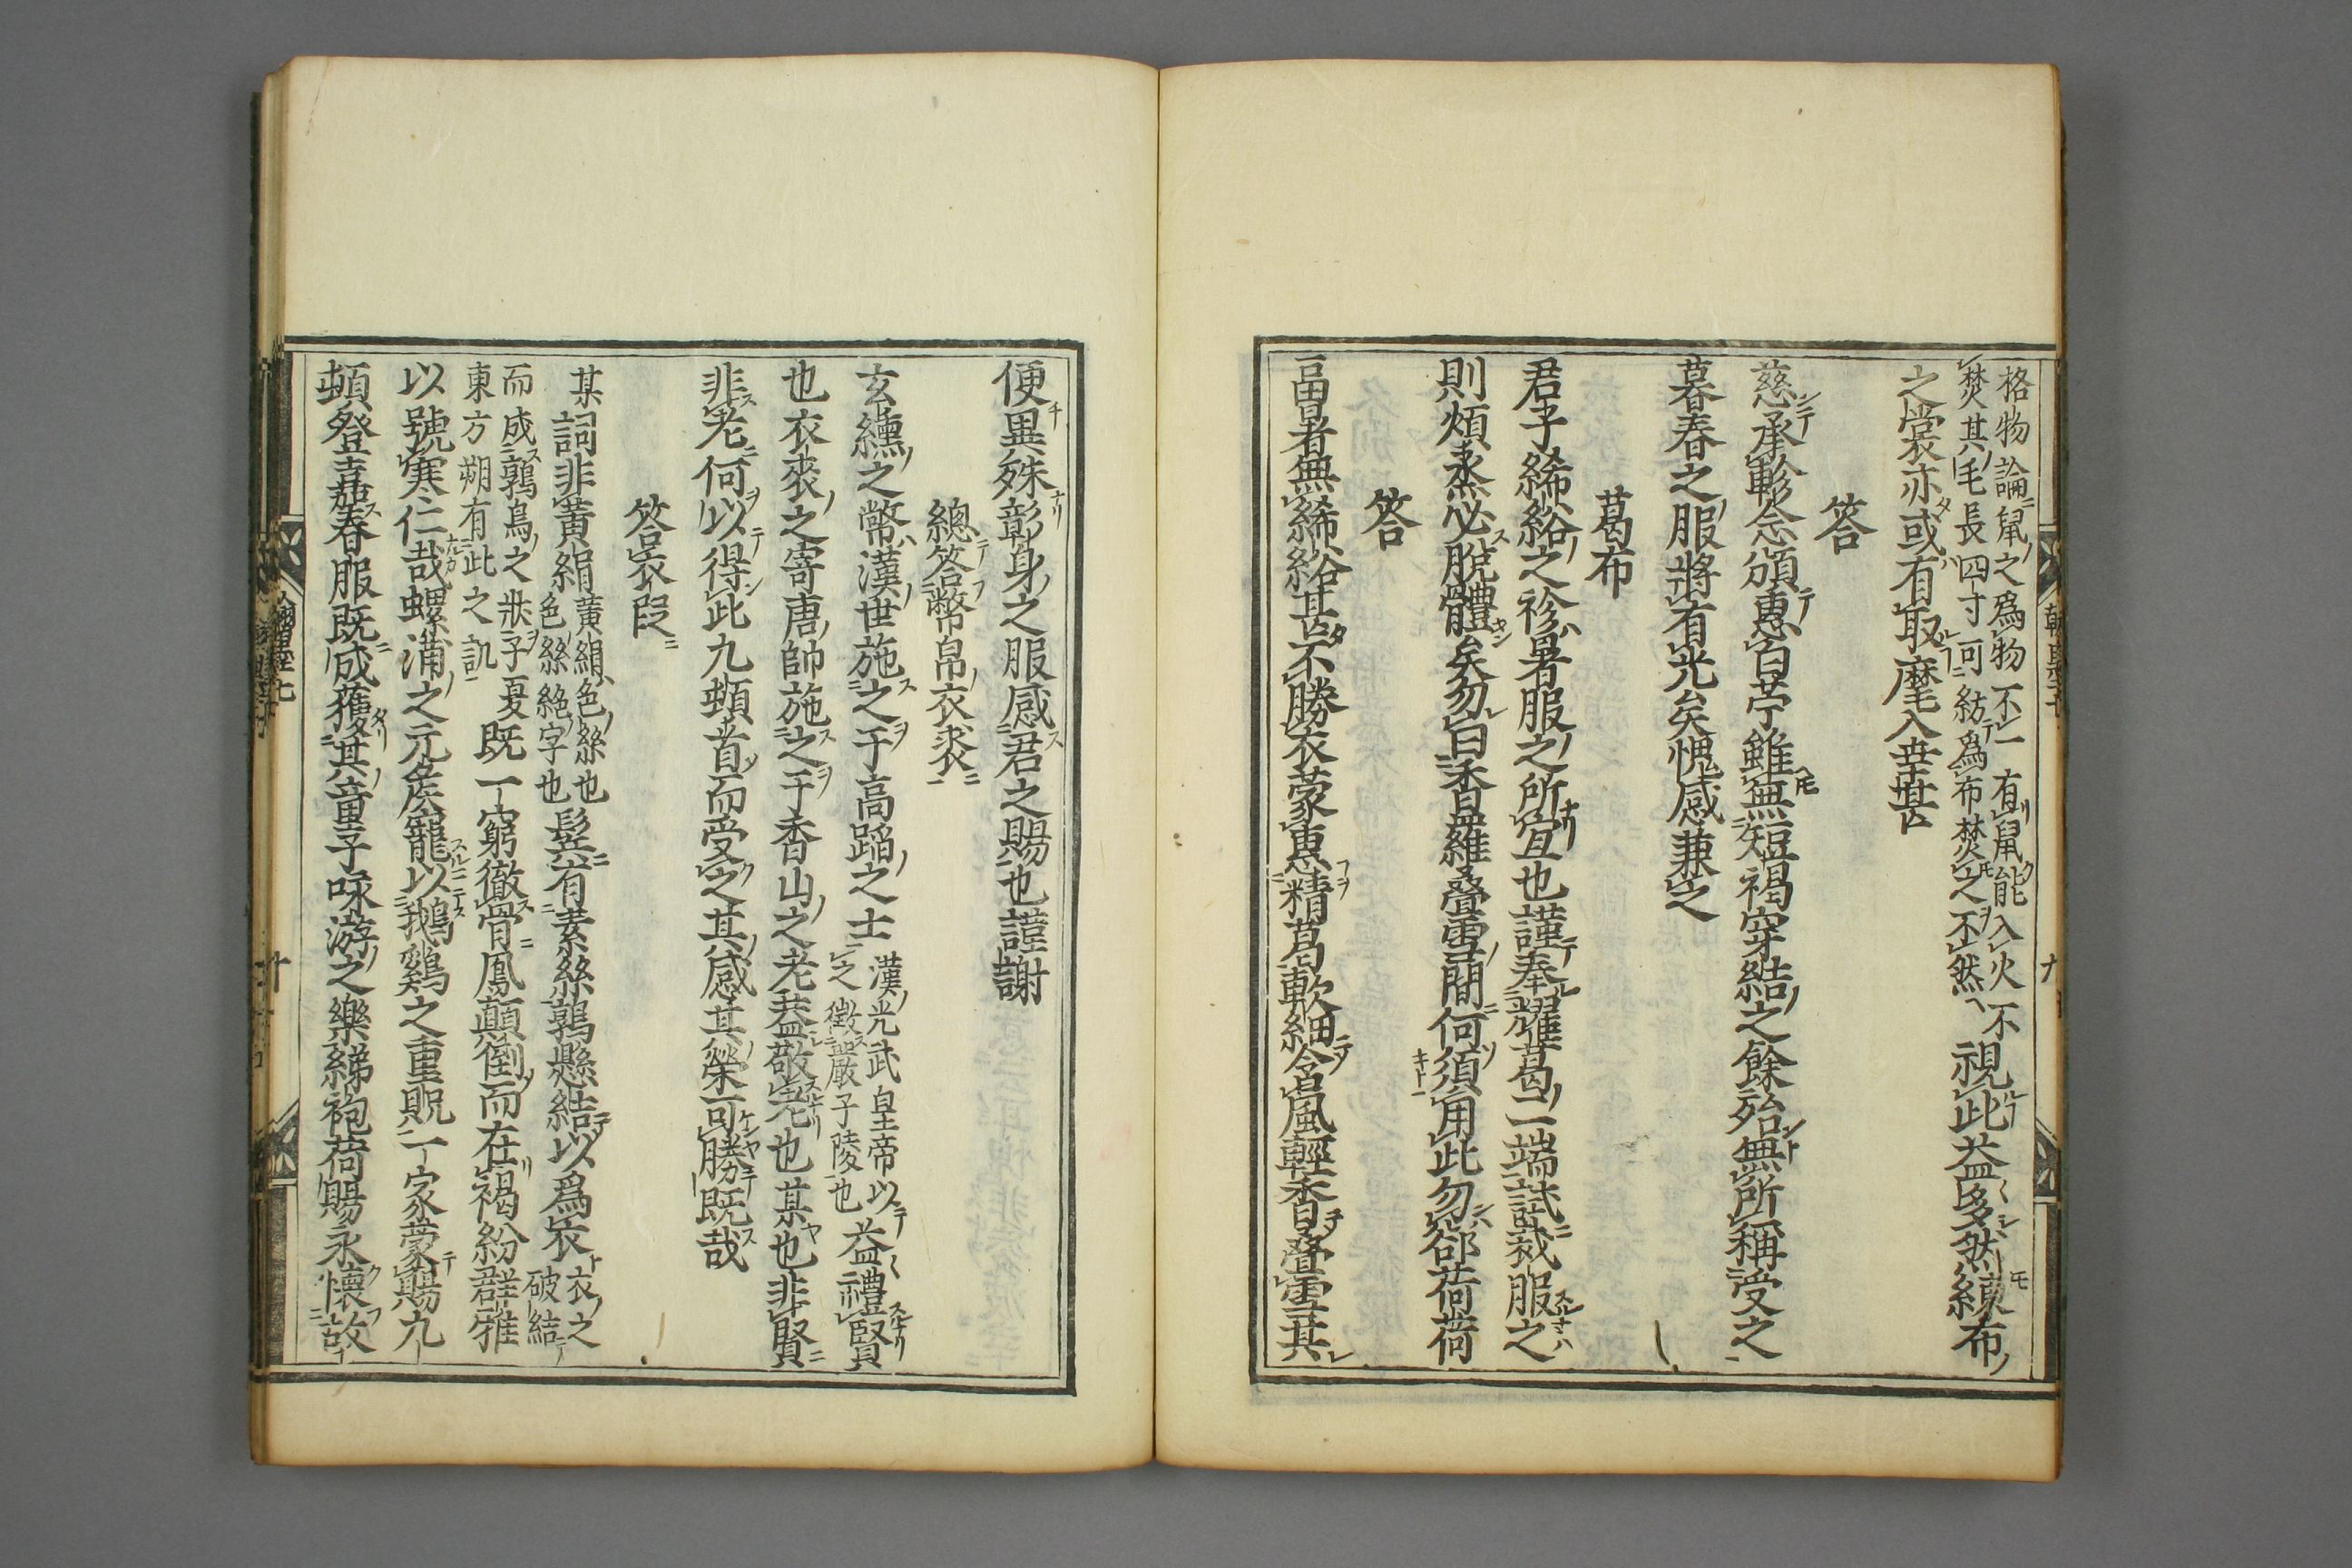 格物論鼠之爲物不一有鼠能入火不
焚其毛長四寸可紡爲布焚之不然
視此益多然練布
之裳亦或有取麾入幸甚
答
慈承軫念頒惠白苧雖無短褐穿結之餘殆無所稱受之
暮春之服將有光矣愧感兼之
葛布
君子絺綌之袗暑服之所宜也謹奉耀葛二端試裁服之
則煩烝必脫體矣勿曰香羅疊雪間何須用此勿郤荷荷
答
當暑無絺綌甚不勝衣蒙惠精葛軟細含風輕香疊雪其
便異殊彰身之服感君之賜也謹謝
總答幣帛衣裘
玄纁之幣漢世施之于高蹈之士
漢光武皇帝以
之徵嚴子陵也
益禮賢
也衣裘之寄唐帥施之于香山之老益敬老也某也非賢
非老何以得此九頓首而受之其感其榮可勝既哉
答衣段
某詞非黃絹
黃絹色絲也
色絲絕字也
髮有素絲鶉懸結以爲衣
衣之破結
而成鶉鳥之狀子夏
東方朔有此之訊
既一窮徹骨鳳顛倒而在褐紛群雅
以號寒仁哉螺浦之元侯寵以鵝鷄之重貺一家蒙賜九
頓登嘉春服既成獲其童子咏游之樂綈袍荷賜永懷故